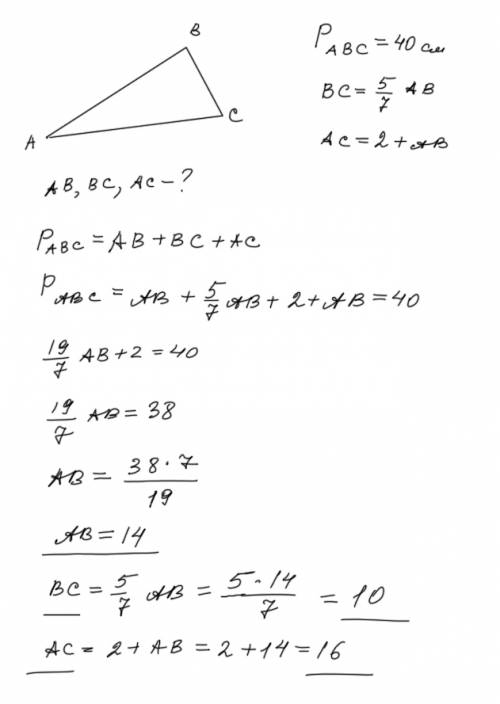 B
A
C
P_{ABC} = 40 см
BC = \frac{5}{7} AB
AC = 2 + AB
AB, BC, AC - ?
P_{ABC} = AB + BC + AC
P_{ABC} = AB + \frac{5}{7} AB + 2 + AB = 40
\frac{19}{7} AB + 2 = 40
\frac{19}{7} AB = 38
AB = \frac{38 \cdot 7}{19}
AB = 14
BC = \frac{5}{7} AB = \frac{5 \cdot 14}{7} = 10
AC = 2 + AB = 2 + 14 = 16